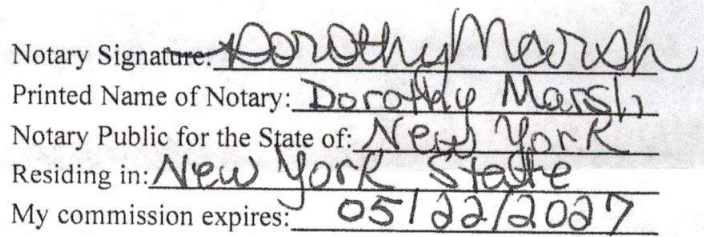 Notary Signature: Dorothy Marsh
Printed Name of Notary: Dorothy Marsh
Notary Public for the State of: New York
Residing in: New York State
My commission expires: 05/22/2027